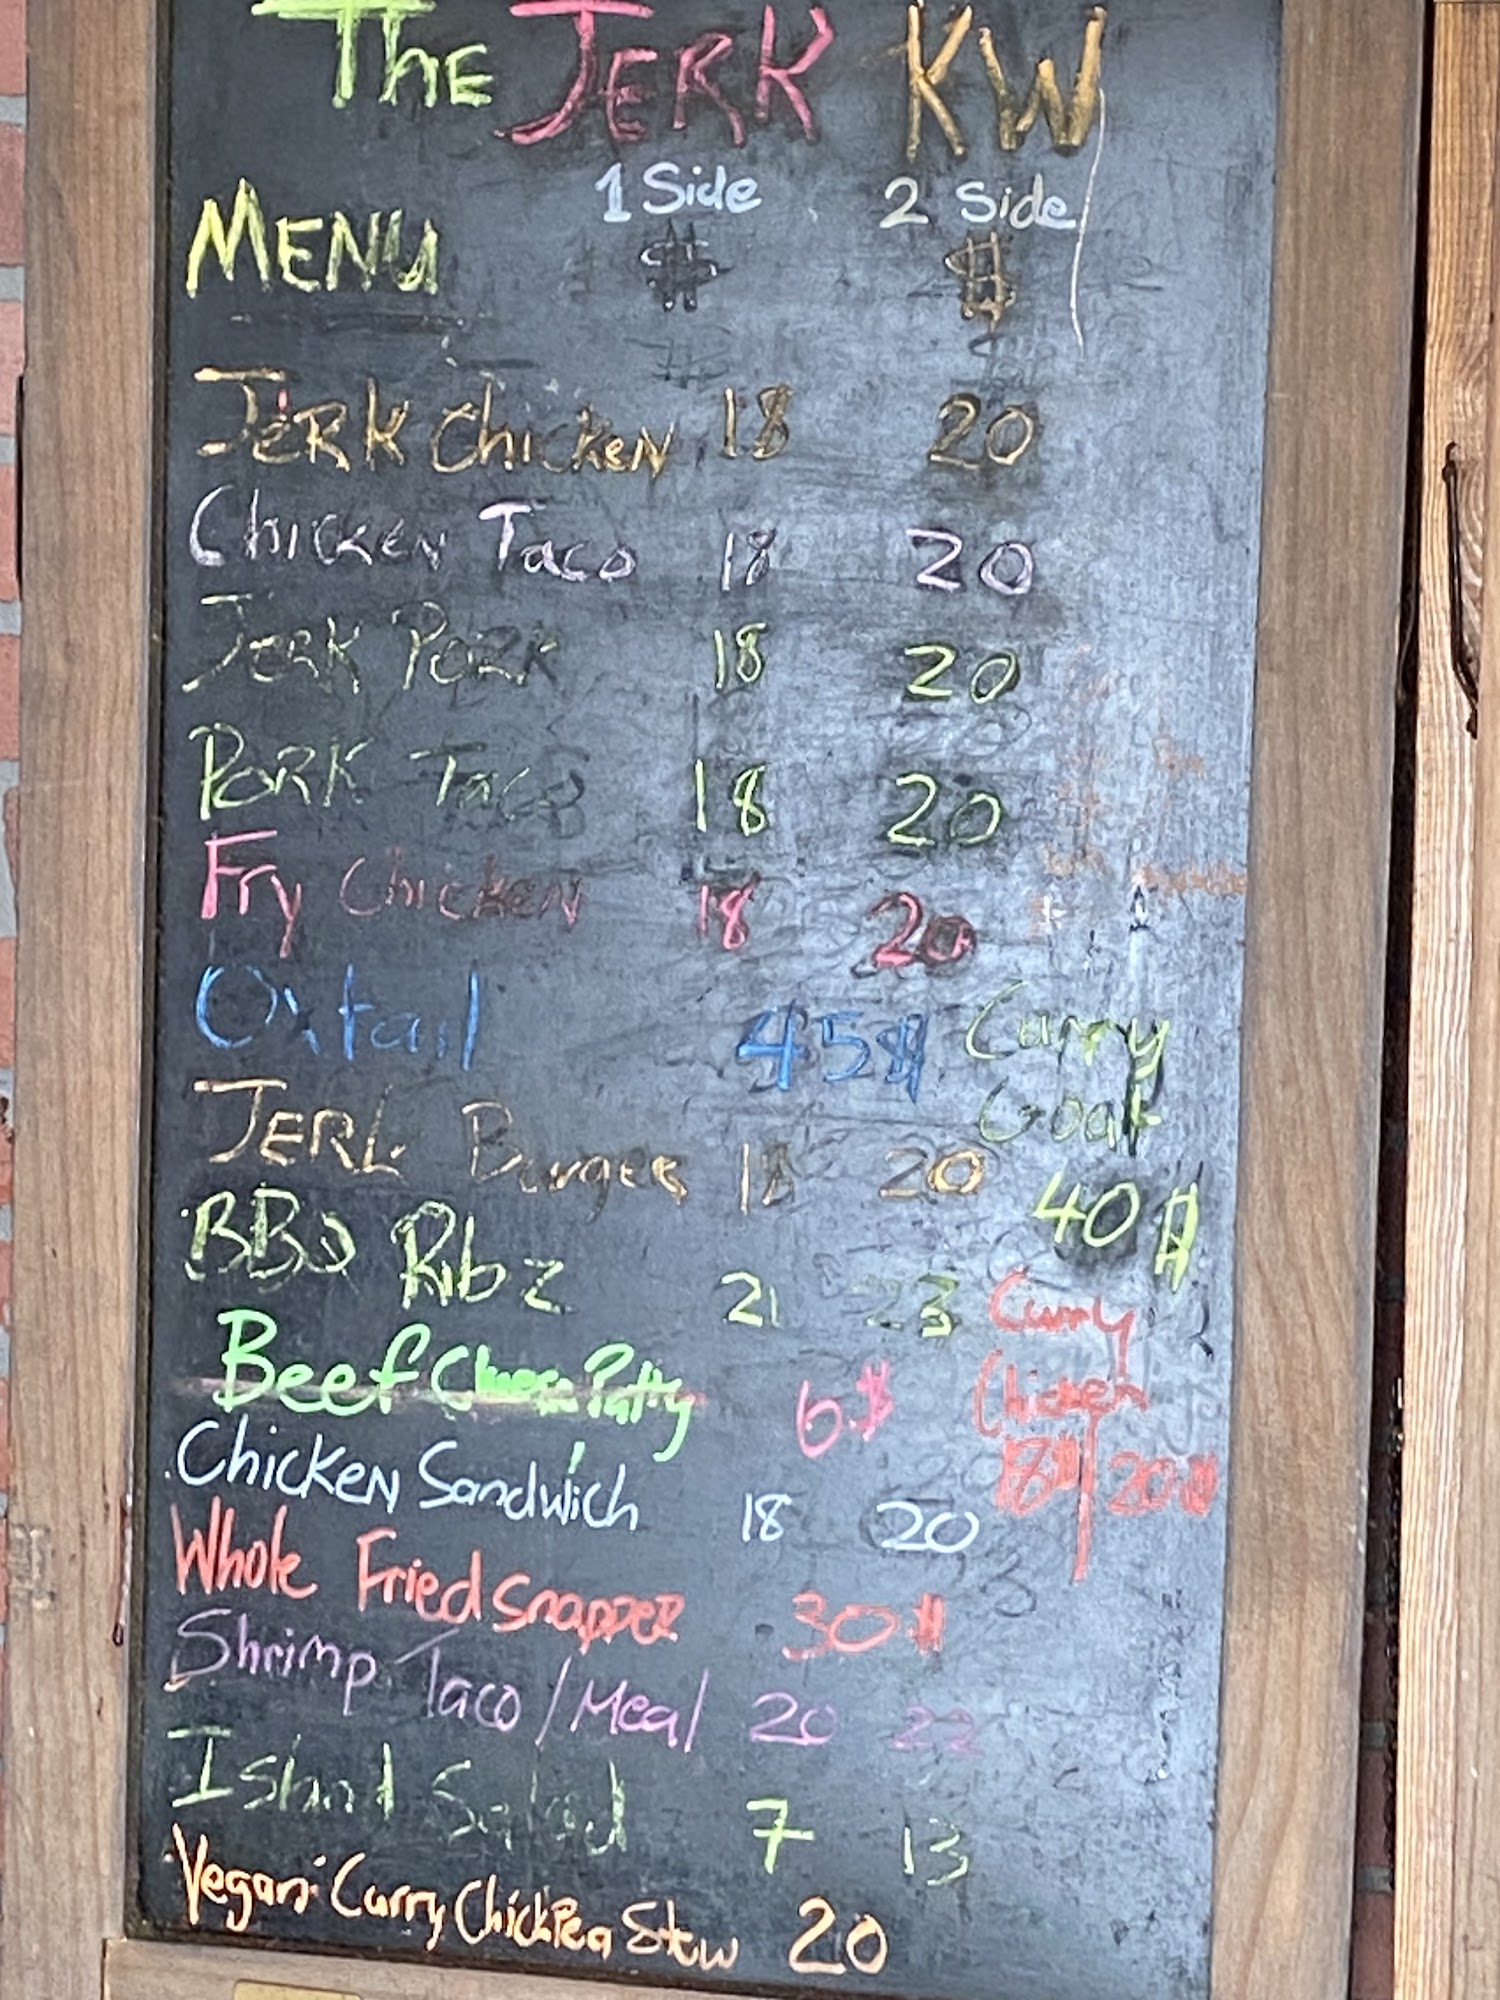 The JERK KW
1 Side 2 Side
MENU $ $
JERK Chicken 18 20
Chicken Taco 18 20
Jerk Pork 18 20
PORK Taco 18 20
Fry Chicken 18 20
Oxtail 45$
Curry
Goat
40$
JERK Burger 18 20
BBQ Ribz 21 23
Beef Cheese Patty 6$
Curry
Chicken
18$ 20$
Chicken Sandwich 18 20
Whole Fried Snapper 30$
Shrimp Taco/Meal 20 22
Island Salad 7 13
Vegan Curry ChickPea Stew 20